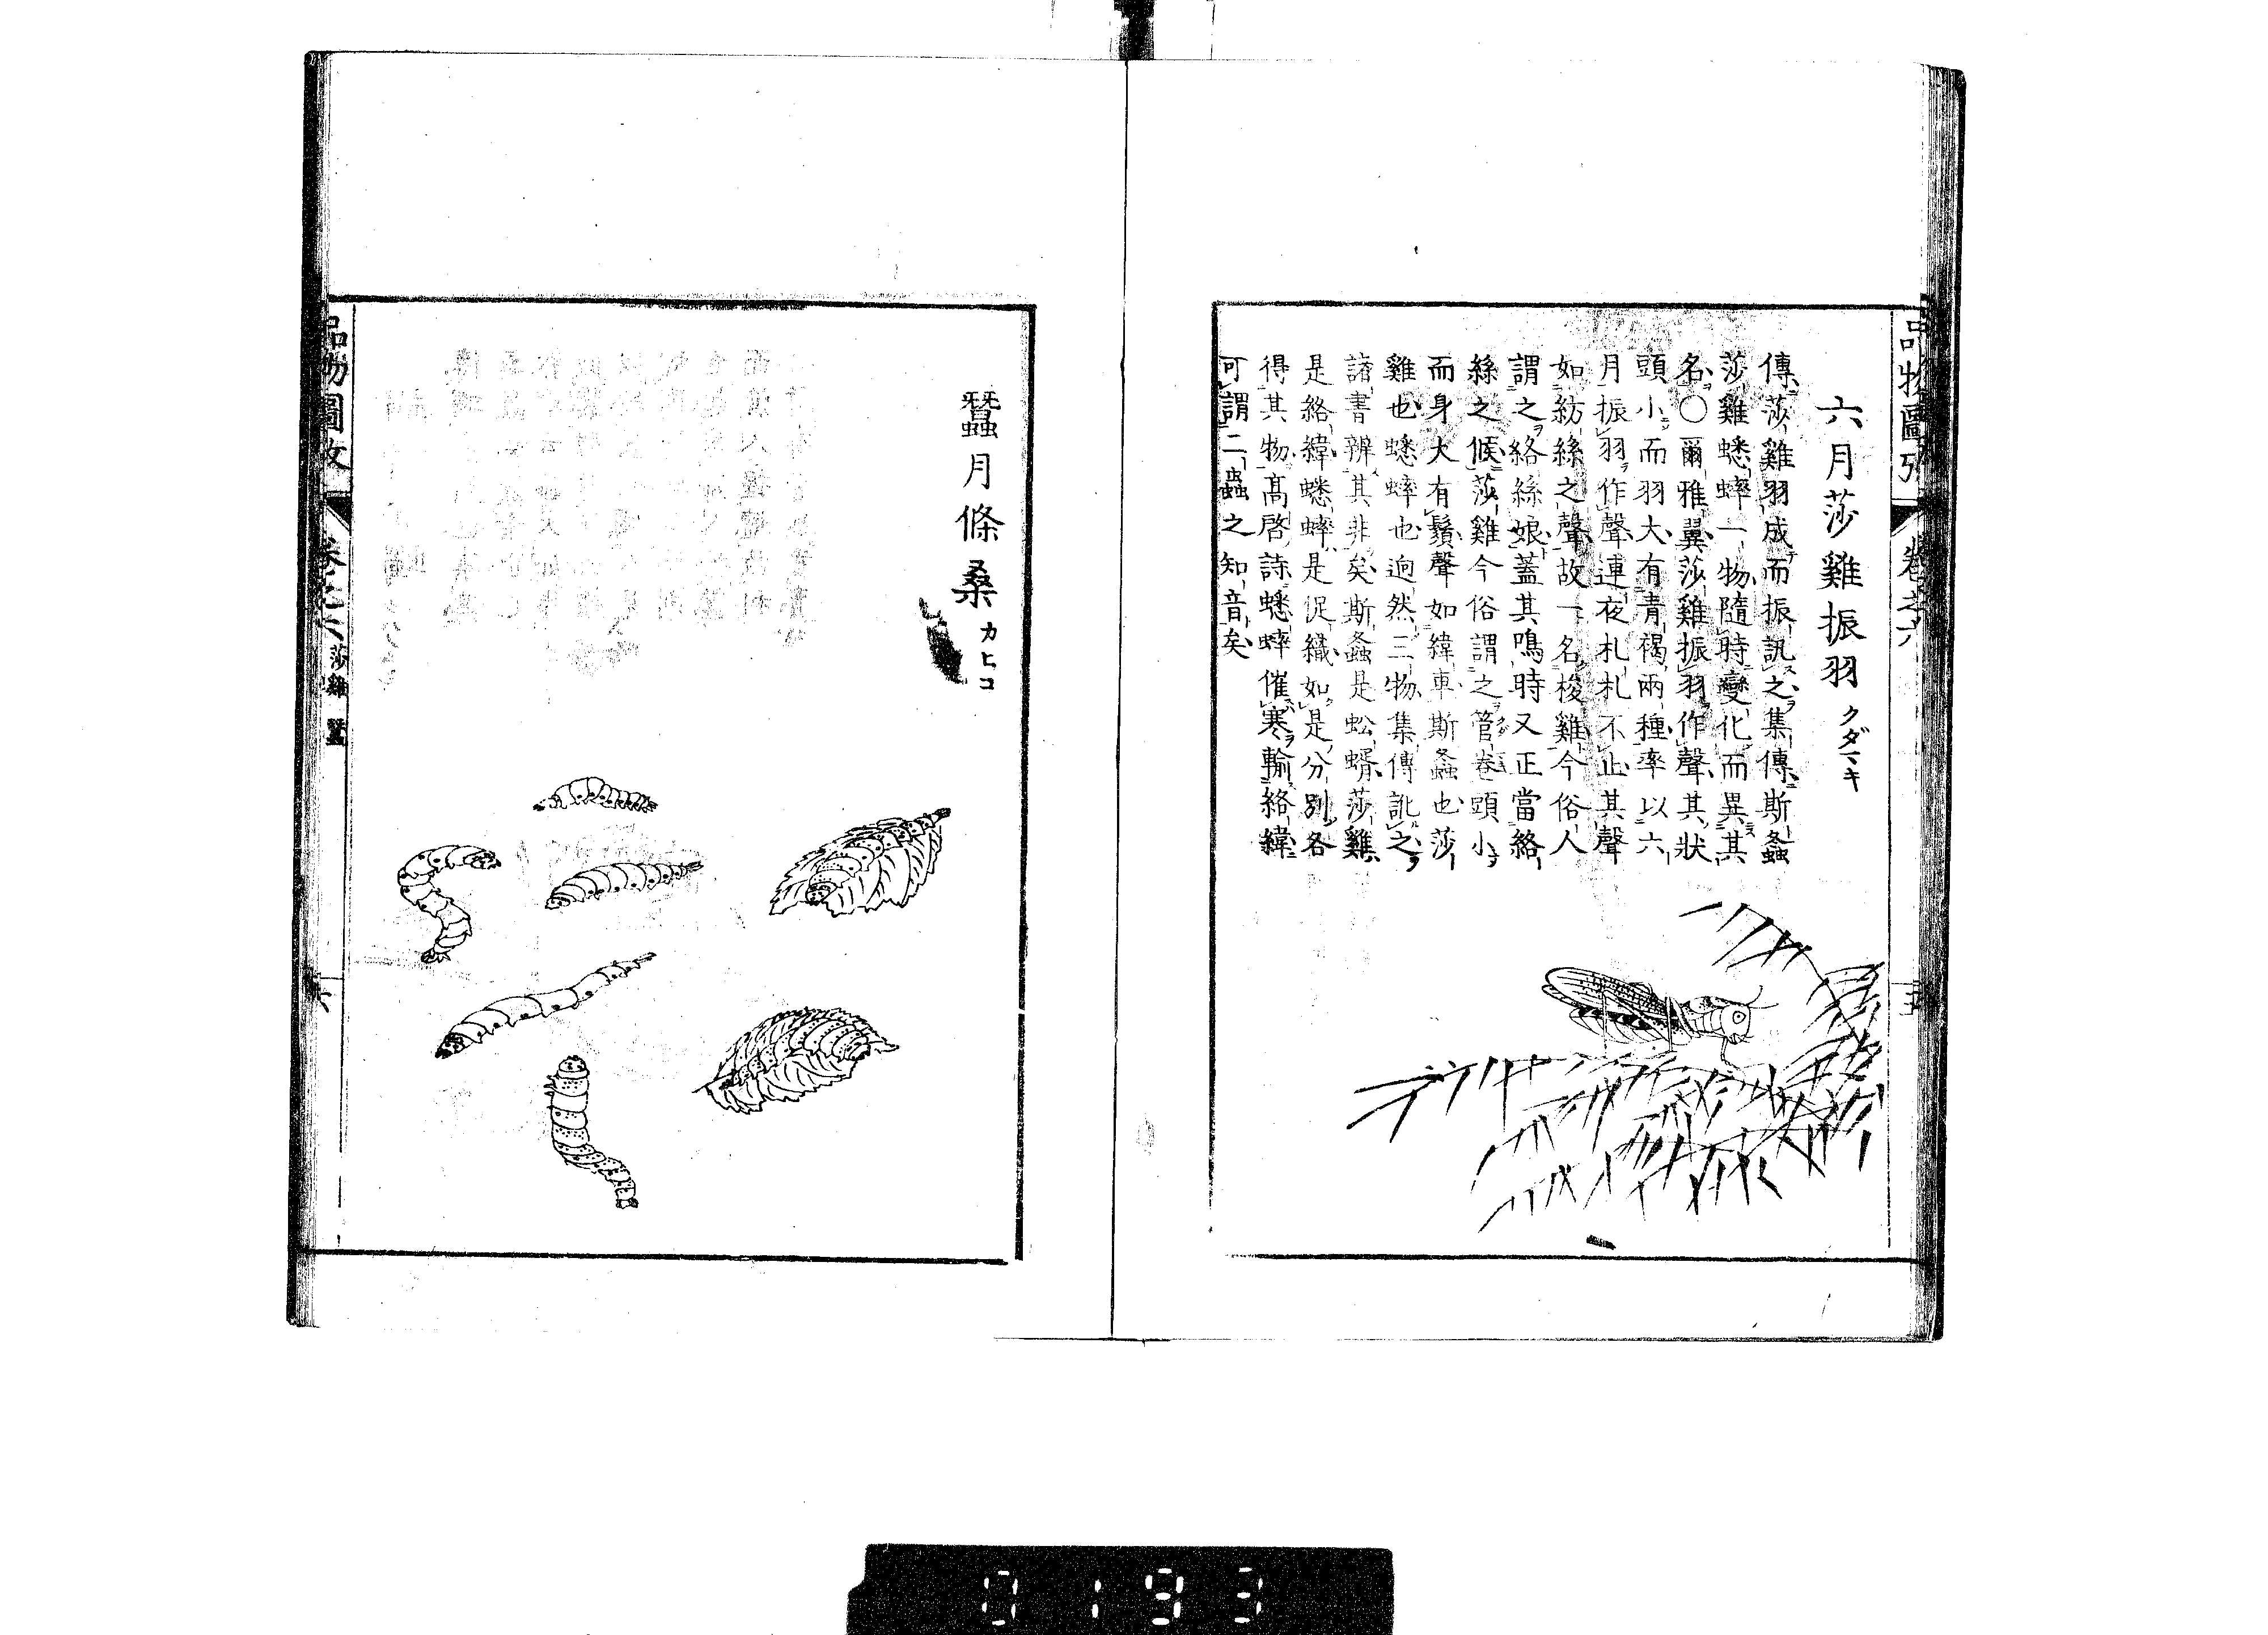 品物圖攷
卷之六
五
六月莎雞振羽 クダマキ
傳莎雞羽成而振訊之集傳斯螽
莎雞蟋蟀一物隨時變化而異其
名〇爾雅翼莎雞振羽作聲其狀
頭小而羽大有青褐兩種率以六
月振羽作聲連夜札札不止其聲
如紡絲之聲故一名梭雞今俗人
謂之絡絲娘蓋其鳴時又正當絡
絲之候莎雞今俗謂之管卷頭小
而身大有鬚聲如緯車斯螽也莎
雞也蟋蟀也逈然三物集傳訛之
諸書辨其非矣斯螽是蚣蝑莎雞
是絡緯蟋蟀是促織如是分別各
得其物高啓詩蟋蟀催寒輸絡緯
可謂二蟲之知音矣
蠶月條桑 カヒコ
品物圖攷
卷之六 莎雞 蠶
六
0193